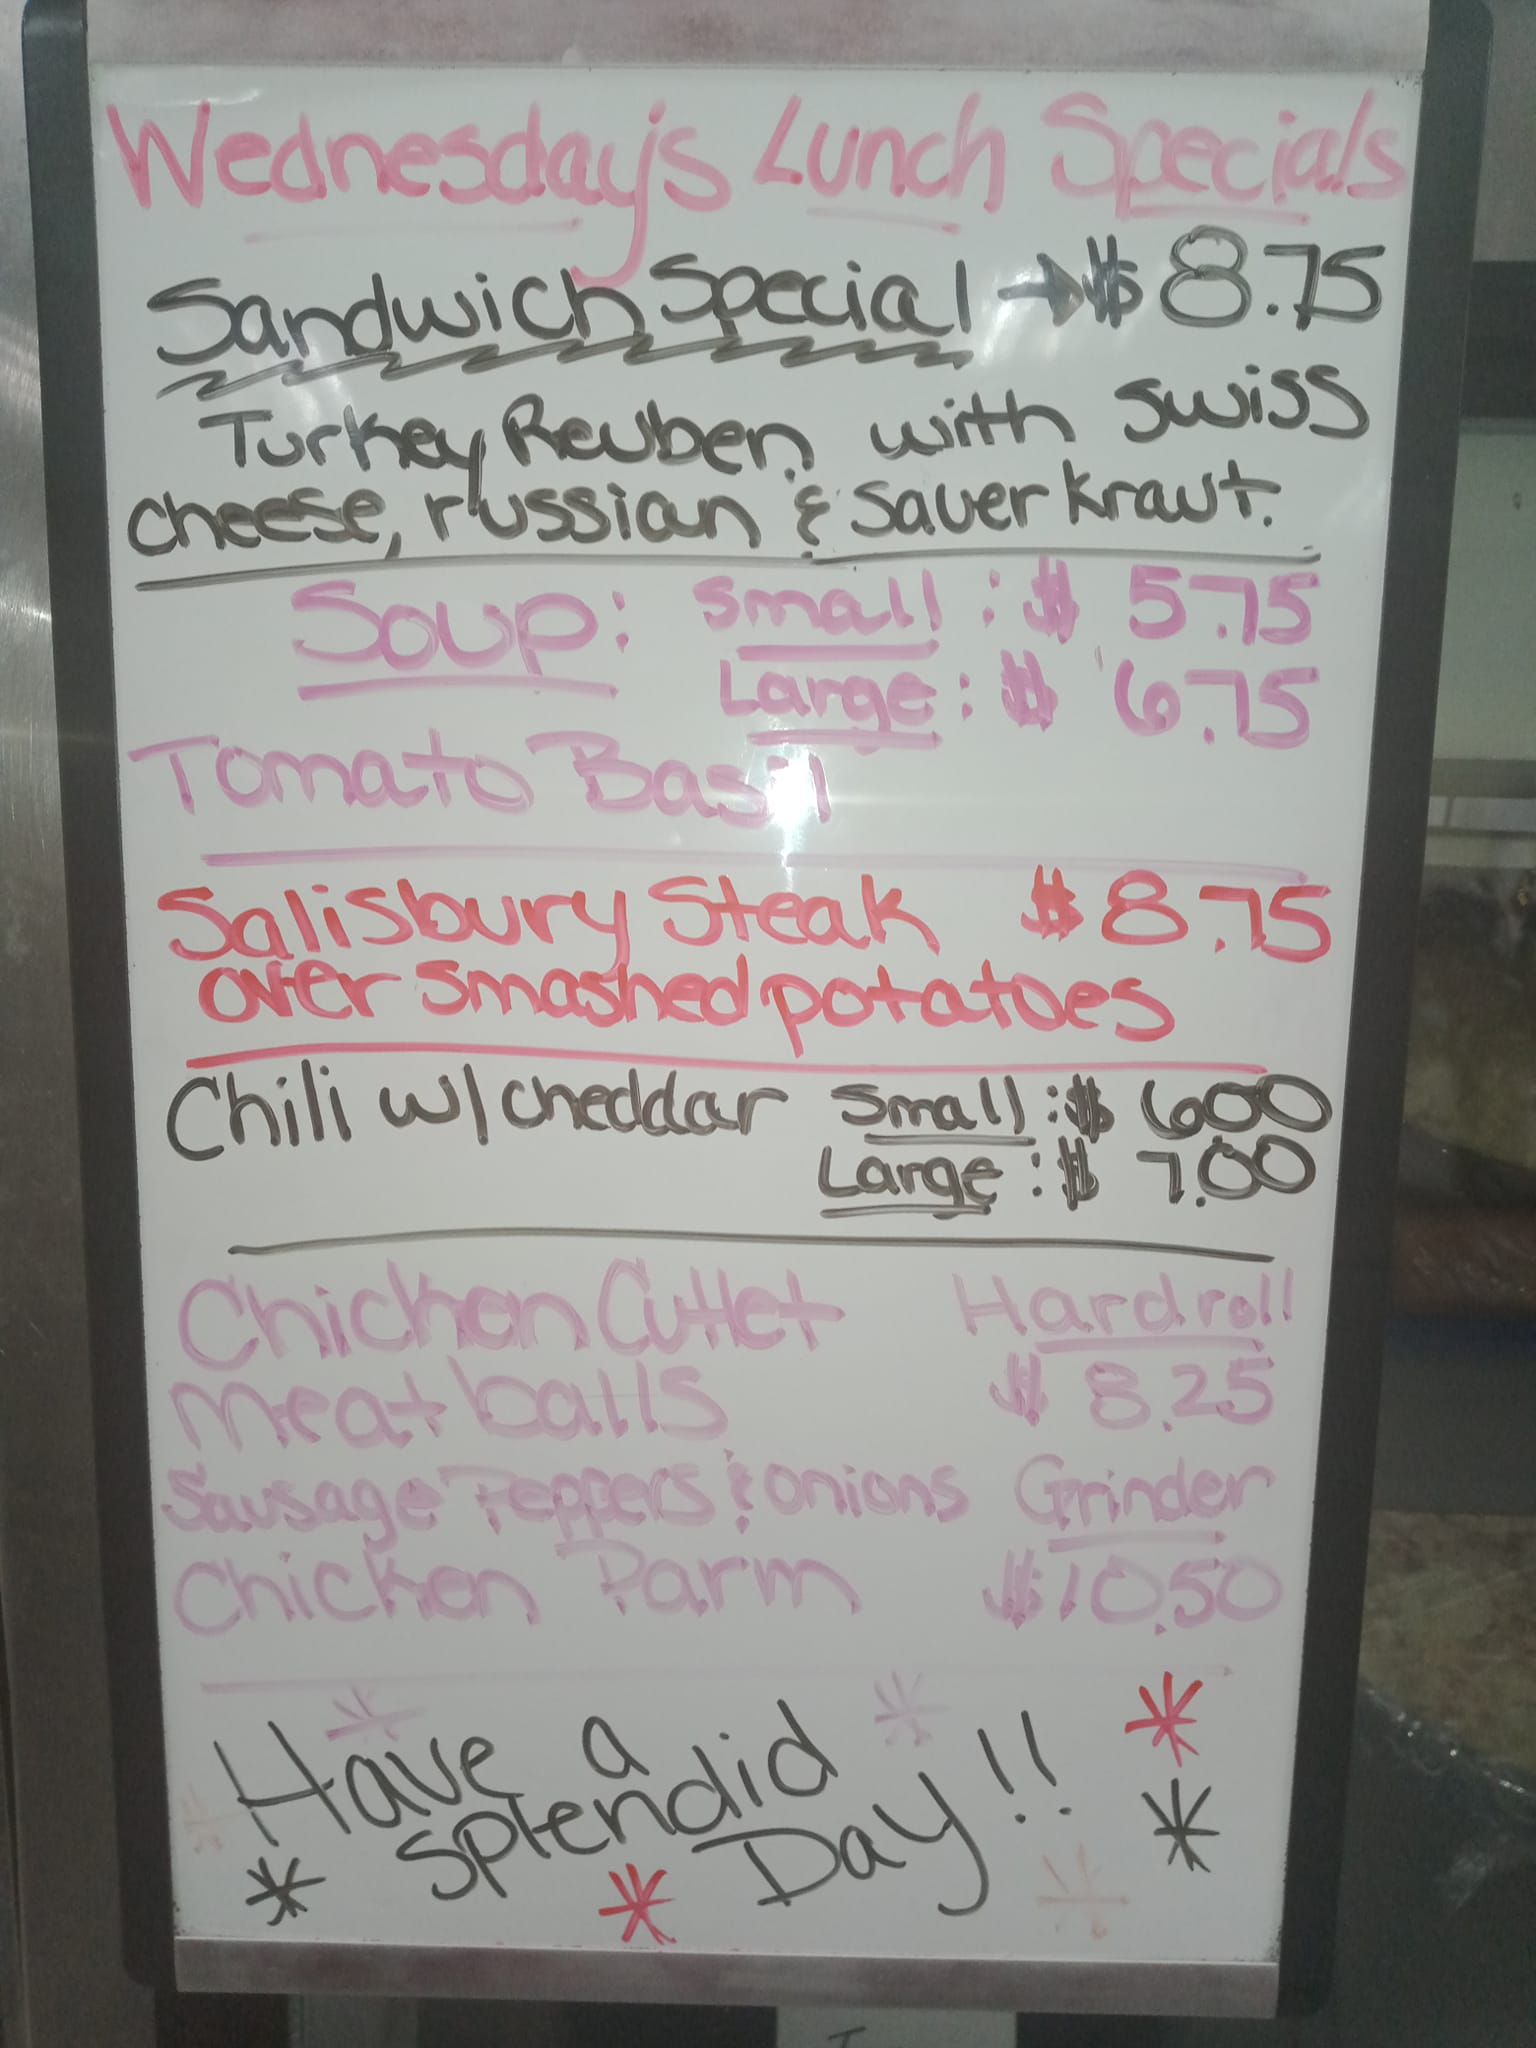 Wednesday's Lunch Specials
Sandwich Special → $ 8.75
Turkey Reuben with swiss
cheese, russian & sauerkraut.
Soup: Small: $ 5.75
Large: $ 6.75
Tomato Basil
Salisbury Steak $ 8.75
over smashed potatoes
Chili w/ cheddar Small: $ 6.00
Large: $ 7.00
Chicken Cutlet Hard roll
Meatballs $ 8.25
Sausage Peppers & onions Grinder
Chicken Parm $10.50
Have a
splendid
Day!!